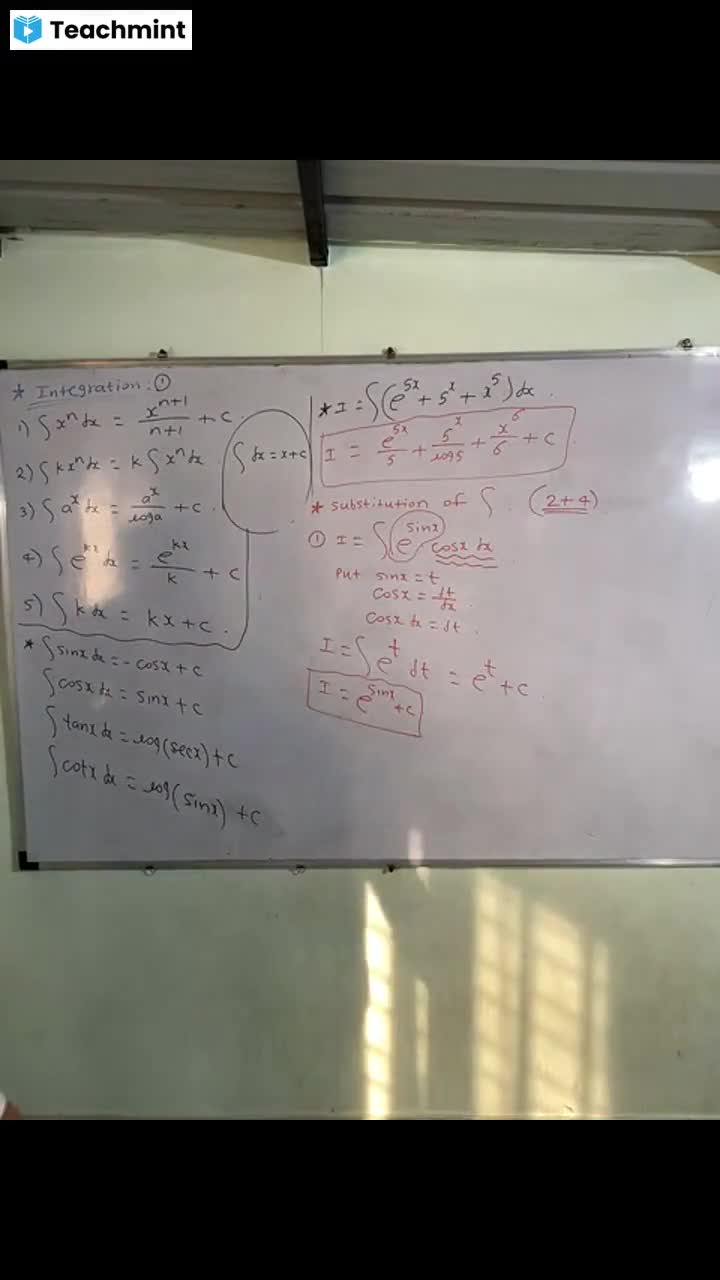 Teachmint
* Integration: ①
1) ∫ xⁿ dx = xⁿ⁺¹/n+1 + c.
2) ∫ kxⁿ dx = k ∫ xⁿ dx.
∫ dx = x+c
3) ∫ aˣ dx = aˣ/loga + c.
4) ∫ eᵏˣ dx = eᵏˣ/k + c
5) ∫ k dx = kx + c.
* ∫ sinx dx = - cosx + c
∫ cosx dx = sinx + c
∫ tanx dx = log(secx) + c
∫ cotx dx = log(sinx) + c
* I = ∫ (e⁵ˣ + 5ˣ + x⁵) dx.
I = e⁵ˣ/5 + 5ˣ/log5 + x⁶/6 + c
* substitution of ∫. (2+4)
① I = ∫ e^sinx cosx dx
Put sinx = t
cosx = dt/dx
cosx dx = dt.
I = ∫ eᵗ dt = eᵗ + c
I = e^sinx + c